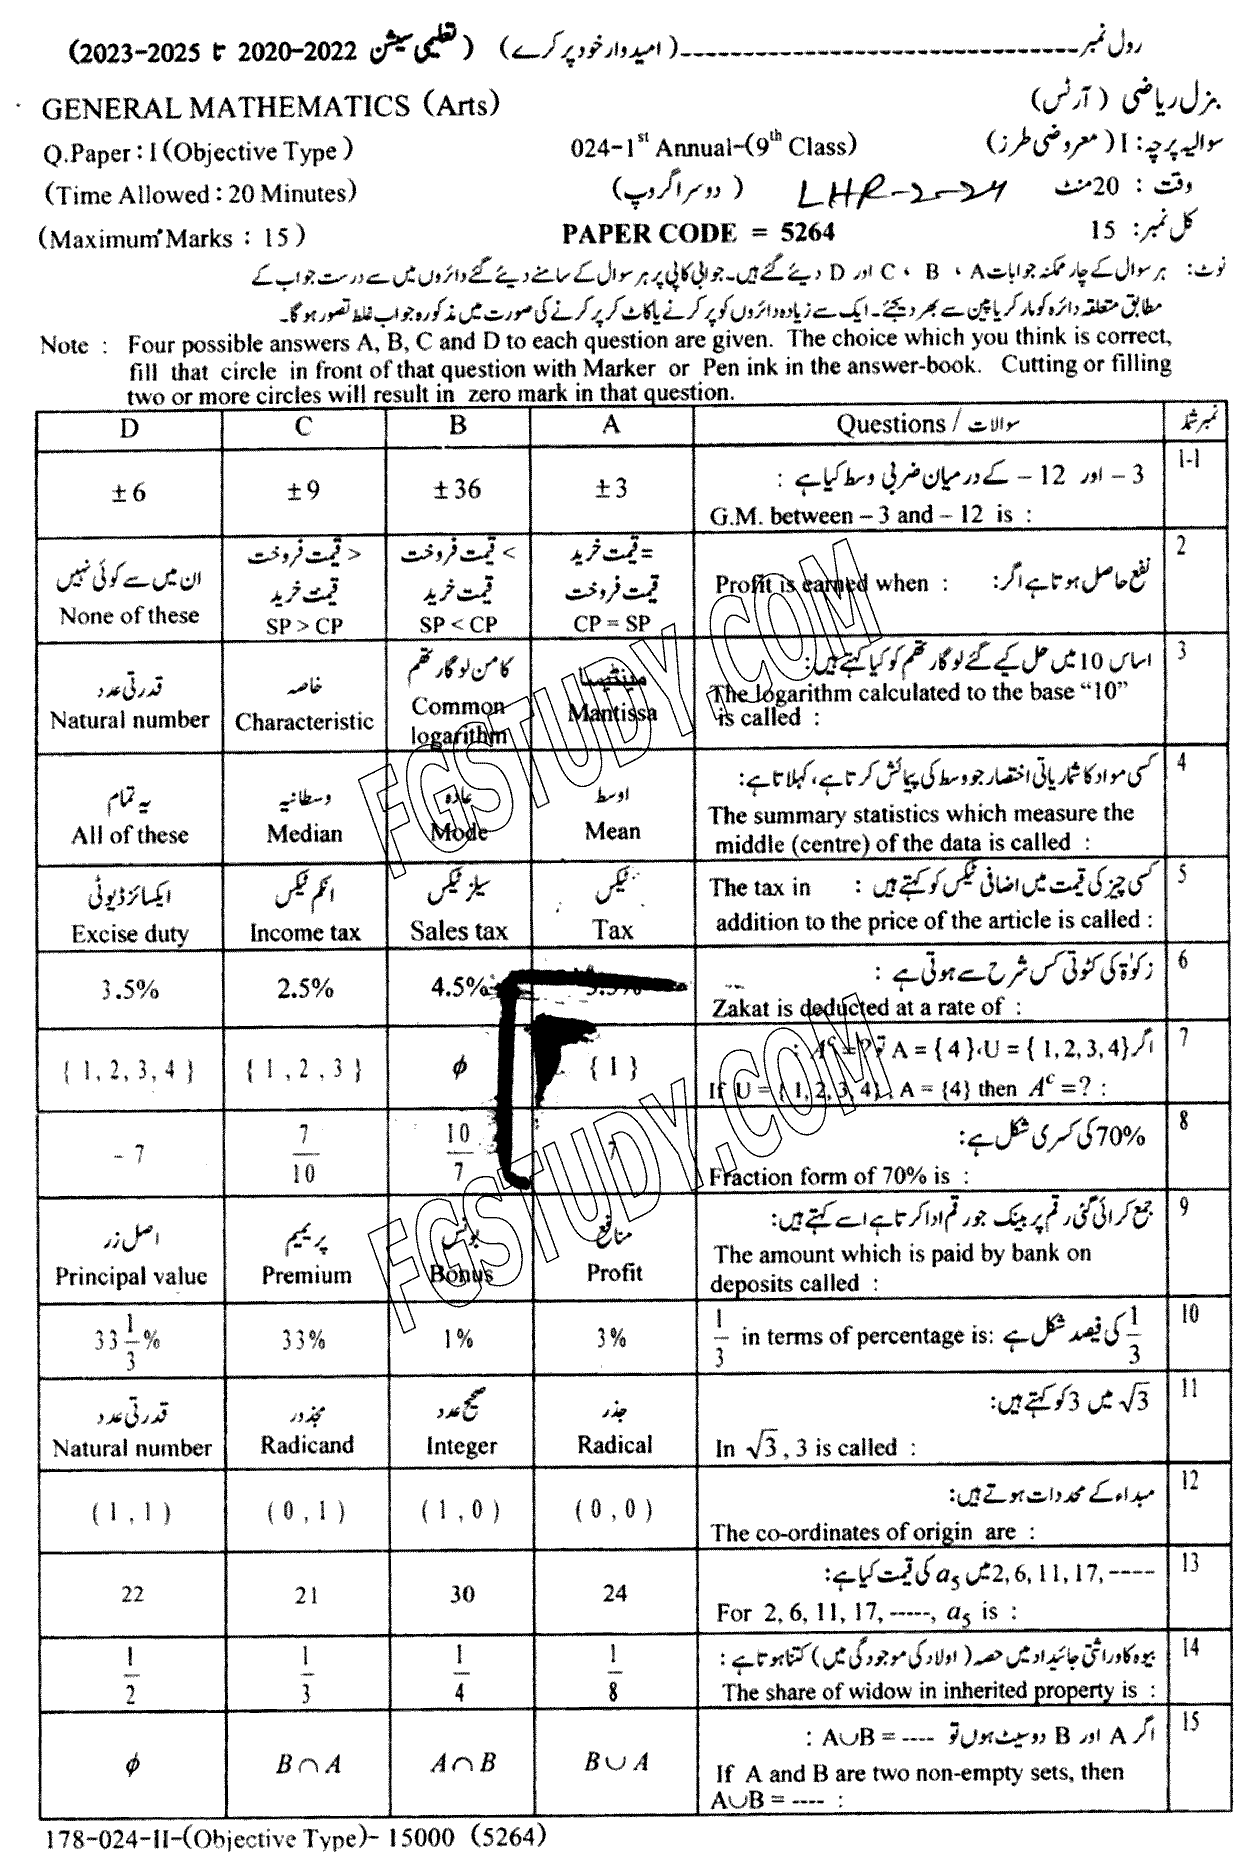 رول نمبر ---------------------------------- (امیدوار خود پر کرے) (تعلیمی سیشن 2020-2022 تا 2023-2025)
GENERAL MATHEMATICS (Arts) جنرل ریاضی (آرٹس)
Q.Paper : I (Objective Type) 024-1st Annual-(9th Class) سوالیہ پرچہ : I (معروضی طرز)
(Time Allowed : 20 Minutes) (دوسرا گروپ) LHR-2-24 وقت : 20 منٹ
(Maximum Marks : 15) PAPER CODE = 5264 کل نمبر : 15
نوٹ : ہر سوال کے چار ممکنہ جوابات A ، B ، C اور D دیئے گئے ہیں۔ جوابی کاپی پر ہر سوال کے سامنے دیئے گئے دائروں میں سے درست جواب کے
مطابق متعلقہ دائرہ کو مارکر یا پین سے بھر دیجئے۔ ایک سے زیادہ دائروں کو پر کرنے یا کاٹ کر پر کرنے کی صورت میں مذکورہ جواب غلط تصور ہوگا۔
Note : Four possible answers A, B, C and D to each question are given. The choice which you think is correct,
fill that circle in front of that question with Marker or Pen ink in the answer-book. Cutting or filling
two or more circles will result in zero mark in that question.
D C B A Questions / سوالات نمبر شمار
1-1 – 3 اور – 12 کے درمیان ضربی وسط کیا ہے :
± 6 ± 9 ± 36 ± 3
G.M. between – 3 and – 12 is :
2 نفع حاصل ہوتا ہے اگر: Profit is earned when :
= قیمت خرید < قیمت فروخت > قیمت فروخت ان میں سے کوئی نہیں
قیمت فروخت قیمت خرید قیمت خرید
None of these SP > CP SP < CP CP = SP
3 اساس 10 میں حل کیے گئے لوگارتھم کو کیا کہتے ہیں:
قدرتی عدد خاصہ کامن لوگارتھم مینٹیسا
The logarithm calculated to the base “10”
is called :
Natural number Characteristic Common logarithm Mantissa
4 کسی مواد کا شماریاتی اختصار جو وسط کی پیمائش کرتا ہے، کہلاتا ہے:
یہ تمام وسطانیہ عادہ اوسط
The summary statistics which measure the
middle (centre) of the data is called :
All of these Median Mode Mean
5 کسی چیز کی قیمت میں اضافی ٹیکس کو کہتے ہیں : The tax in
addition to the price of the article is called :
ایکسائز ڈیوٹی انکم ٹیکس سیلز ٹیکس ٹیکس
Excise duty Income tax Sales tax Tax
6 زکوٰۃ کی کٹوتی کس شرح سے ہوتی ہے :
3.5% 2.5% 4.5%
Zakat is deducted at a rate of :
7 اگر U = { 1, 2, 3, 4} ، A = { 4 } تو Ac = ? :
{ 1, 2, 3, 4 } { 1 , 2 , 3 } ϕ { 1 }
If U = { 1, 2, 3, 4} , A = {4} then Ac = ? :
8 70% کی کسری شکل ہے:
- 7 7/10 10/7 7
Fraction form of 70% is :
9 جمع کرائی گئی رقم پر بینک جو رقم ادا کرتا ہے اسے کہتے ہیں:
اصل زر پریمیم بونس منافع
The amount which is paid by bank on
deposits called :
Principal value Premium Bonus Profit
10 1/3 کی فیصد شکل ہے 1/3 in terms of percentage is:
33 1/3 % 33% 1% 3%
11 √3 میں 3 کو کہتے ہیں:
قدرتی عدد مجذور صحیح عدد جذر
In √3 , 3 is called :
Natural number Radicand Integer Radical
12 مبداء کے محددات ہوتے ہیں:
( 1 , 1 ) ( 0 , 1 ) ( 1 , 0 ) ( 0 , 0 )
The co-ordinates of origin are :
13 2, 6, 11, 17, ----- میں a5 کی قیمت کیا ہے:
22 21 30 24
For 2, 6, 11, 17, -----, a5 is :
14 بیوہ کا وراثتی جائیداد میں حصہ (اولاد کی موجودگی میں) کتنا ہوتا ہے :
1/2 1/3 1/4 1/8
The share of widow in inherited property is :
15 اگر A اور B دو سیٹ ہوں تو A∪B = ---- :
ϕ B ∩ A A ∩ B B ∪ A
If A and B are two non-empty sets, then
A∪B = ---- :
178-024-II-(Objective Type)- 15000 (5264)
FGSTUDY.COM
FGSTUDY.COM